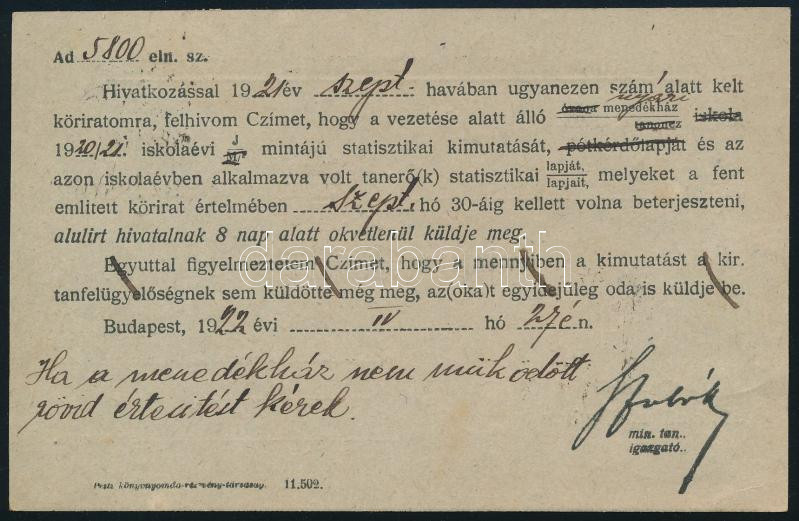 Ad 5800 eln. sz.
Hivatkozással 1921 év szept. havában ugyanezen szám alatt kelt
nyári
köriratomra, felhivom Czímet, hogy a vezetése alatt álló óvoda menedékház iskola
1920/21. iskolaévi J mintájú statisztikai kimutatását, pótkérdőlapját és az
azon iskolaévben alkalmazva volt tanerő(k) statisztikai lapját, lapjait, melyeket a fent
emlitett körirat értelmében szept. hó 30-áig kellett volna beterjeszteni,
alulirt hivatalnak 8 nap alatt okvetlenül küldje meg.
Egyuttal figyelmeztetem Czímet, hogy a mennyiben a kimutatást a kir.
tanfelügyelőségnek sem küldötte még meg, az(oka)t egyidejüleg oda is küldje be.
Budapest, 1922 évi IV hó 27 én.
Ha a menedékház nem müködött
rövid értesitést kérek.
min. tan..
igazgató..
Pesti könyvnyomda-részvény-társaság. 11.502.
darabanth